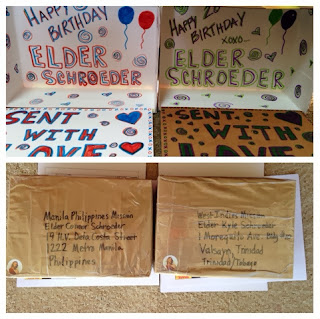 HAPPY BIRTHDAY
ELDER
SCHROEDER
SENT
WITH
LOVE
HAPPY
BIRTHDAY
XOXO...
ELDER
SCHROEDER
SENT
WITH
LOVE
Manila Philippines Mission
Elder Conner Schroeder
Costa Street
1222 Metro Manila
Philippines
West Indies Mission
Elder Kyle Schroeder
Ave.
Valsayn, Trinidad
Trinidad/Tobago